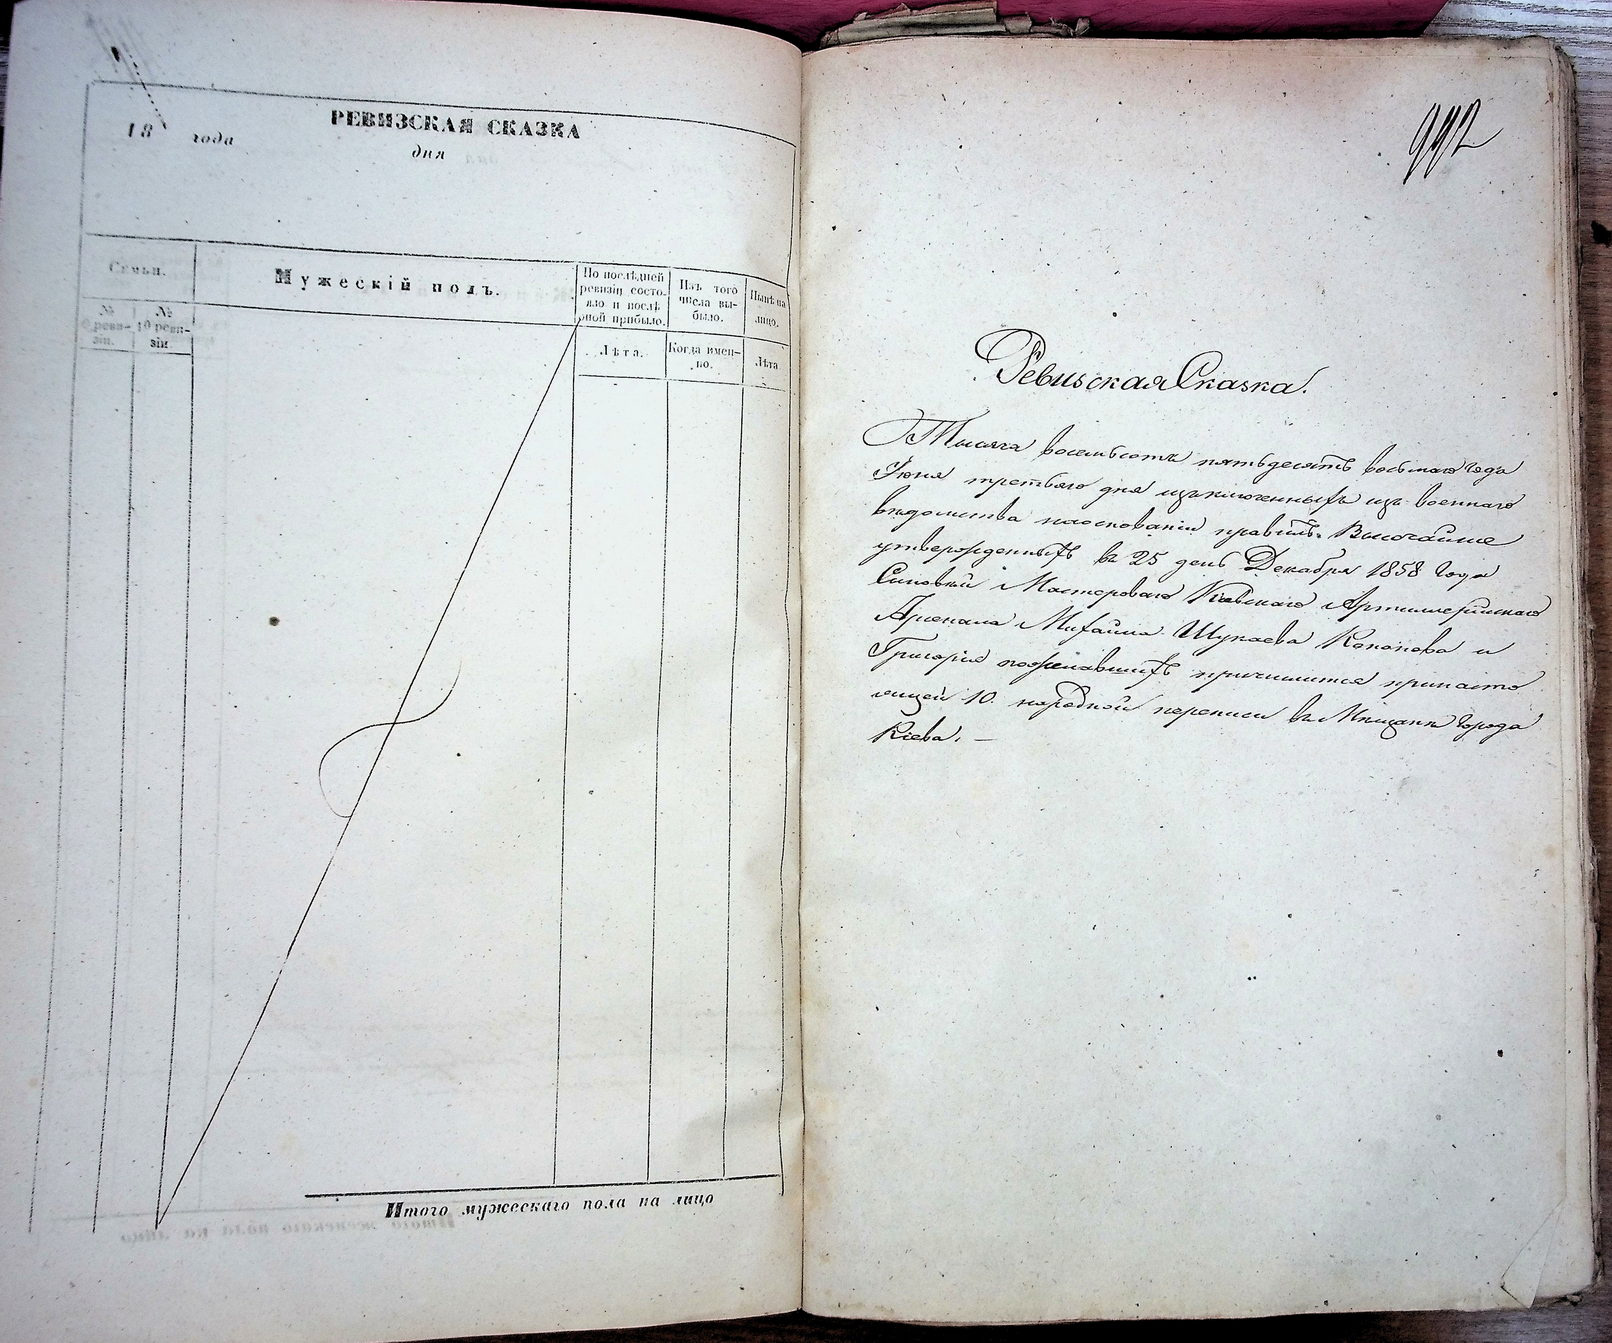 РЕВИЗСКАЯ СКАЗКА
18 года дня
Семьи.
Мужескій полъ.
По послѣдней
ревизіи состо-
яло и послѣ
оной прибыло.
Изъ того
числа вы-
было.
Нынѣ на
лицо.
№
9 реви-
зіи.
№
10 реви-
зіи
Лѣта.
Когда имен-
но.
Лѣта
Итого мужескаго пола на лицо
992
Ревизская Сказка.
Тысяча восемьсотъ пятьдесятъ восьмаго года
Іюня третьяго дня изъключенныхъ изъ военнаго
вѣдомства наосновании правилъ Высочайше
утвержденныхъ въ 25 день Декабря 1858 года
Сыновьи Мастероваго Кіевскаго Артиллерійскаго
Арсенала Михайла Шукаева Конона и
Григорія пожелавшихъ причислится принасто
ящей 10. народной переписи въ Мѣщане города
Кіева. —